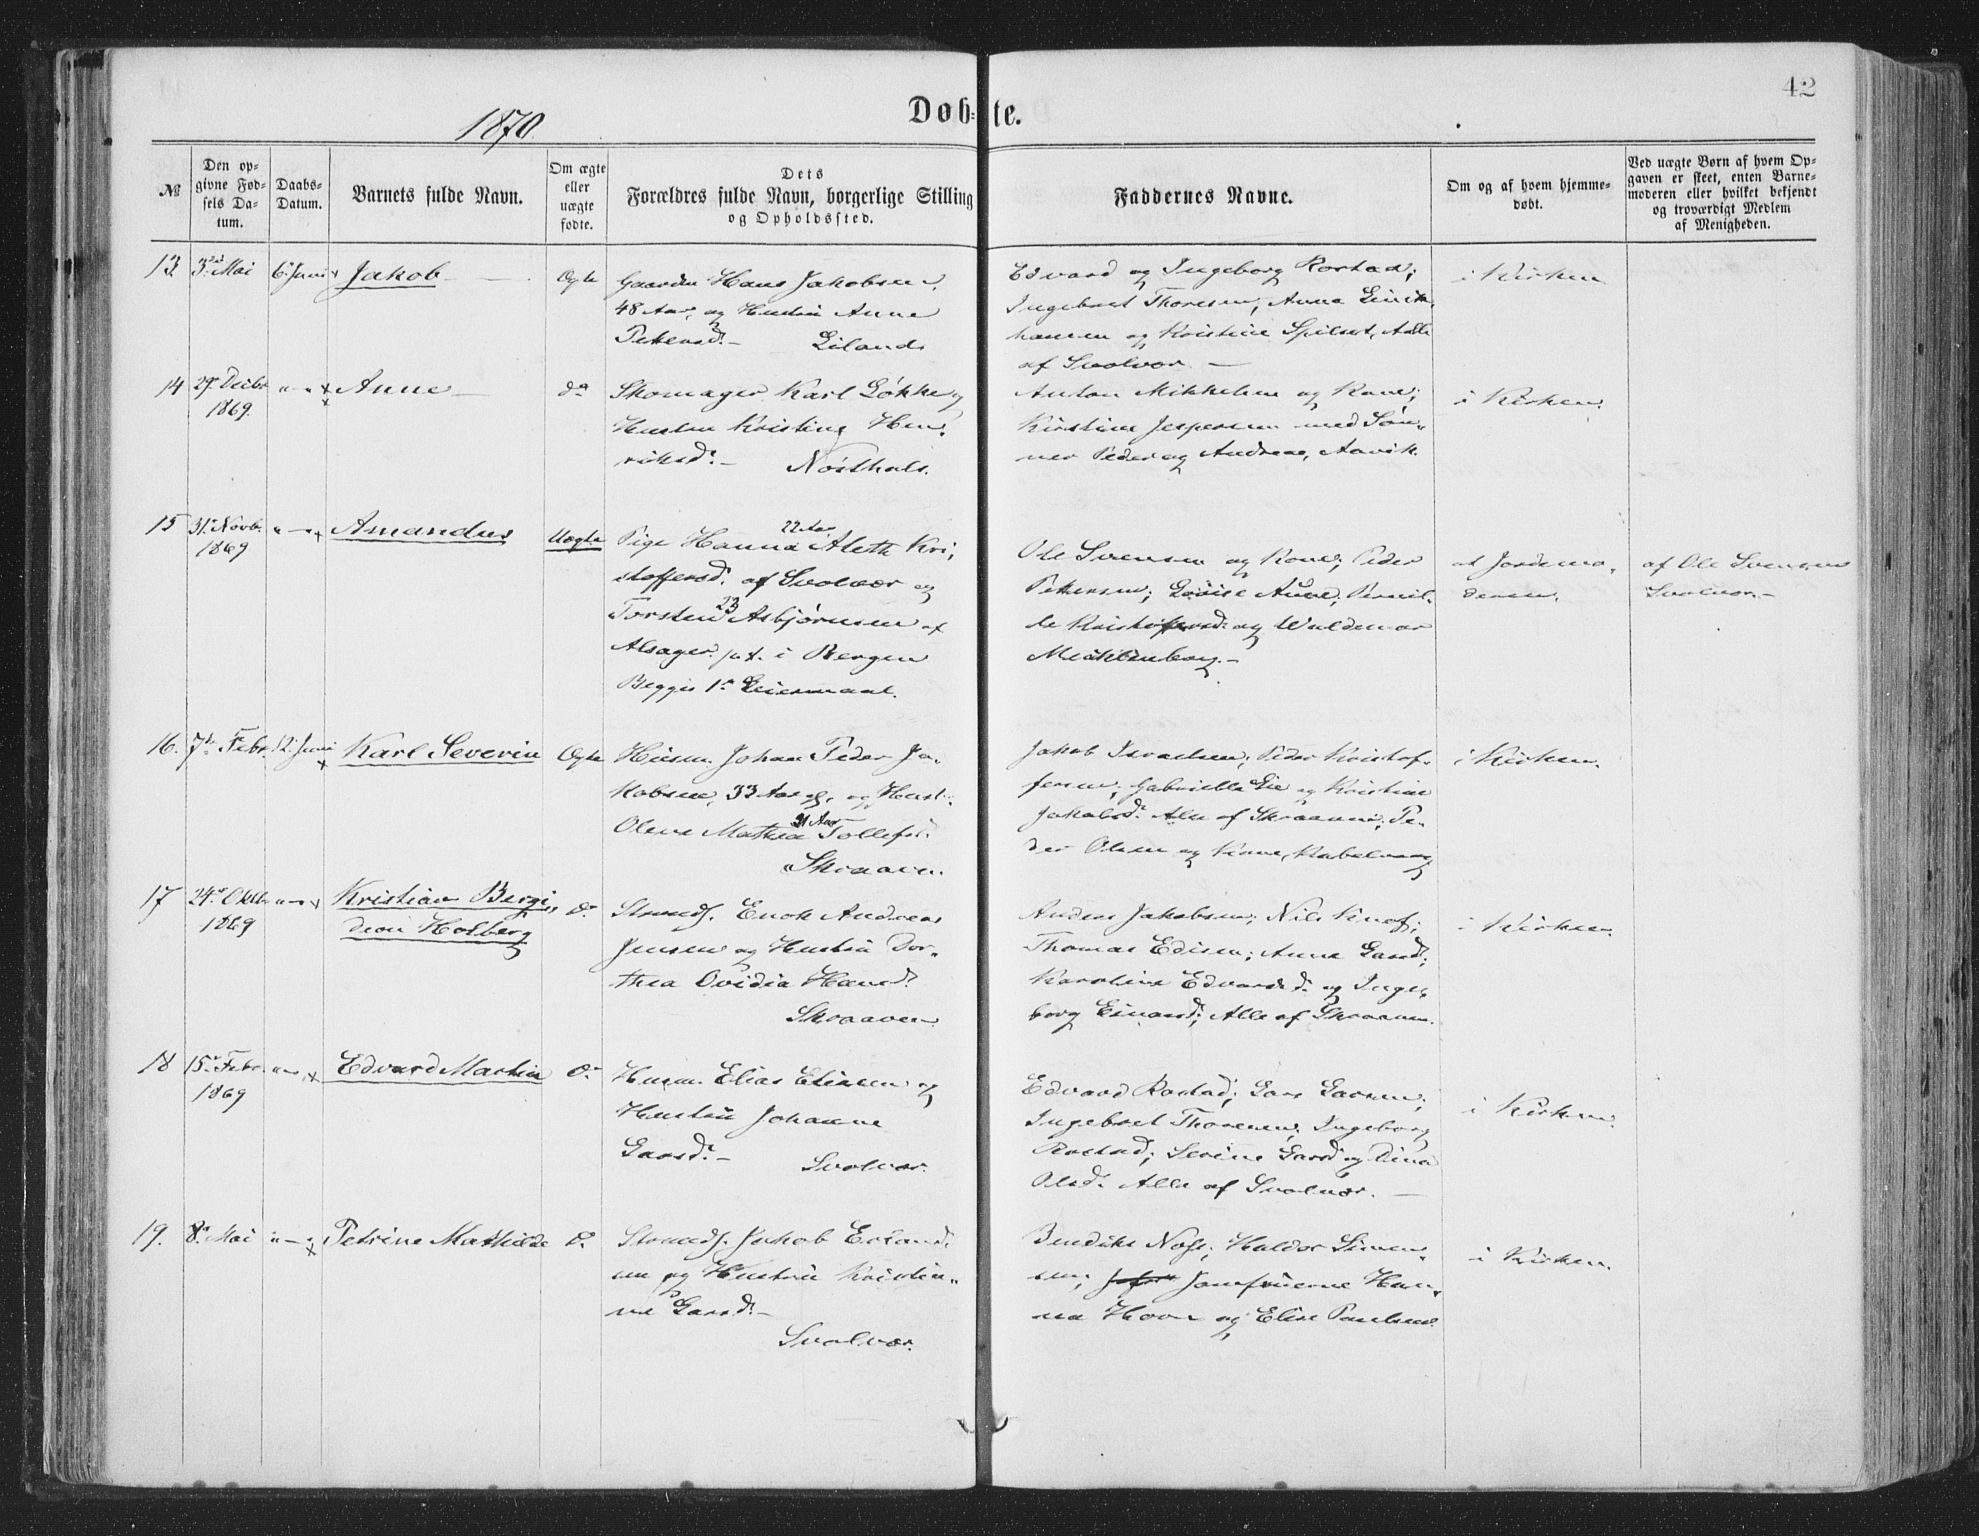 42
1870.
Døb-te.
№
Den op-
givne Fød-
sels Da-
tum.
Daabs-
Datum.
Barnets fulde Navn.
Om ægte
eller
uægte
fødte.
Dets
Forældres fulde Navn, borgerlige Stilling
og Opholdssted.
Faddernes Navne.
Om og af hvem hjemme-
døbt.
Ved uægte Børn af hvem Op-
gaven er skeet, enten Barne-
moderen eller hvilket bekjendt
og troværdigt Medlem
af Menigheden.
13
3. Mai
6. Juni
Jakob
Ægte
Gaardm Hans Jakobsen,
48 Aar, og Hustru Anne
Petersd. – Liland
Edvard og Ingeborg Rostad;
Ingebret Thoresen, Anna
hansen og Kristine Spilset, Alle
af Svolvær. –
i Kirken
14
29. Decbr
1869.
Anne
do
Skomager Karl Løkke og
Hustru Kristine Hen-
riksd. – Nösthals.
Anton Mikkelsen og Kone;
Kirstine Jespersen med Søn-
ner Peder og Andreas, Aavik.
i Kirken.
15
31. Novb.
1869
Amandus
Uægte
22 Aar
Pige Hanna Aleth Kri-
stoffersd. af Svolvær og
23
Torsten Asbjørnsen af
Alsager. p.t. i Bergen
Begges 1. Leiermaal.
Ole Svensen og Kone; Peder
Petersen; Lovise Aune; Pernil-
le Kristoffersd: og Waldemar
Mecklenborg. –
af Jordemo-
deren.
af Ole Svensen
Svolvær. –
16.
7. Febr.
12. Juni
Karl Severin
Ægte
Huusm. Johan Peder Ja-
kobsen, 33 Aar gl, og Hust.
31 Aar
Olene Mathea Tollefsd.
Skraaven.
Jakob Israelsen; Peder Kristof-
fersen; Gabriella Lie og Kristine
Jakobsd: Alle af Skraaven; Pe-
der Olsen og Kone, Kabelvaag
i Kirken.
17
24. Oktb
1869
Kristian Bergi-
dion Holberg
do.
Strands. Enok Andreas
Jensen og Hustru Dor-
thea Ovidia Hansd.
Skraaven
Anders Jakobsen; Nils
Thomas Edisen; Anna Larsd;
Karoline Edvardsd. og Inge-
borg Einarsd; Alle af Skraaven.
i Kirken.
18
15. Febr.
1869
Edvard Martin
do.
Huusm. Elias Eliasen og
Hustru Johanne
Larsd. – Svolvær.
Edvard Rostad; Lars Larsen;
Ingebret Thoresen; Ingeborg
Rostad; Serine Larsd og Dina
Olsd. Alle af Svolvær. –
i Kirken.
19.
8. Mai
Petrine Mathilde
do.
Strands. Jakob Erland-
sen og Hustru Kristin-
ne Larsd. –
Svolvær.
Bendiks Noss; Haldor Simon-
sen; Jomfruerne Han-
na Hovn og Elise Paulsen.
i Kirken.